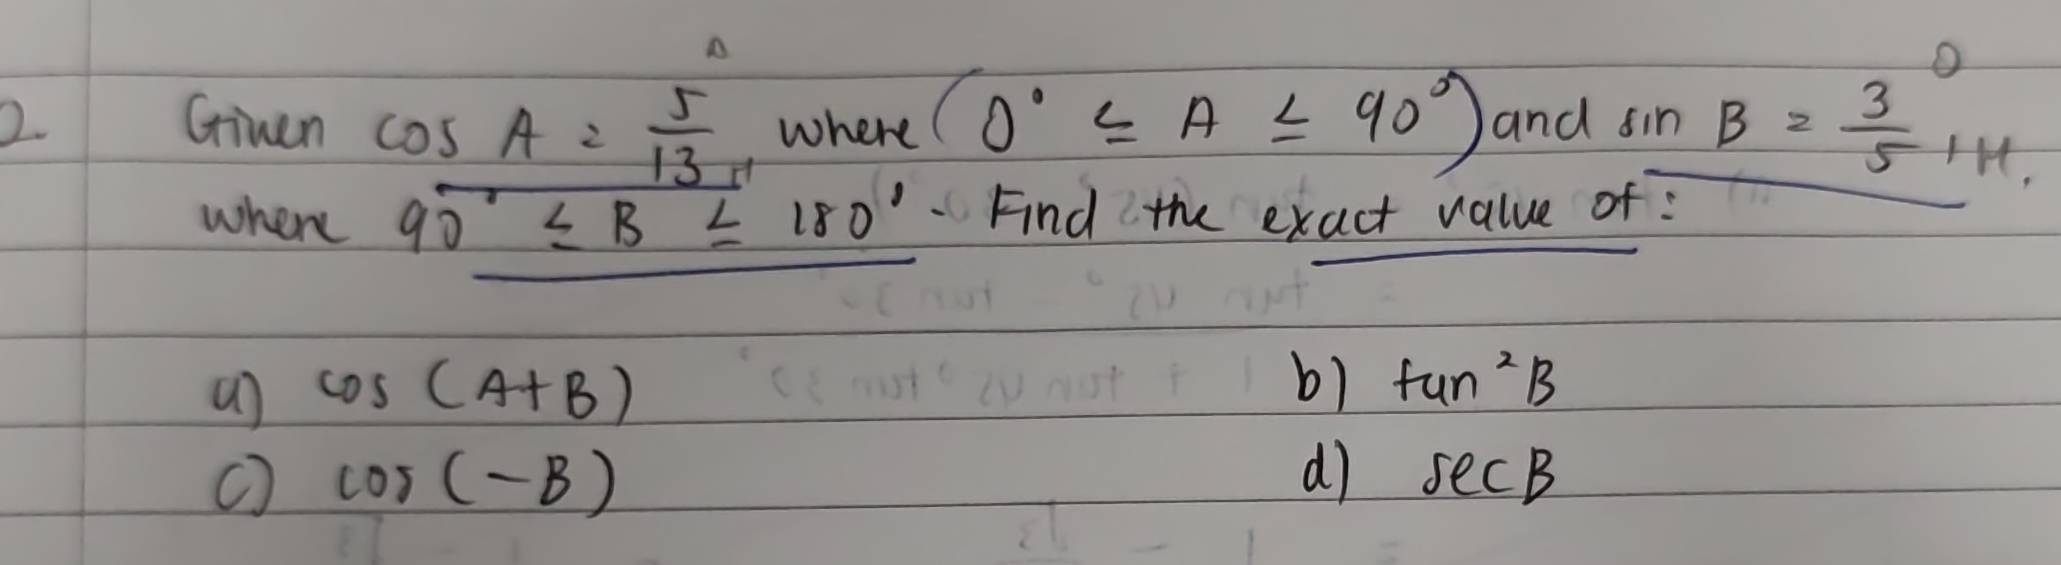 2. Given cos A = 5/13, where (0° ≤ A ≤ 90°) and sin B = 3/5,
where 90° ≤ B ≤ 180°. Find the exact value of:
a) cos (A+B) b) tan²B
c) cos (-B) d) sec B